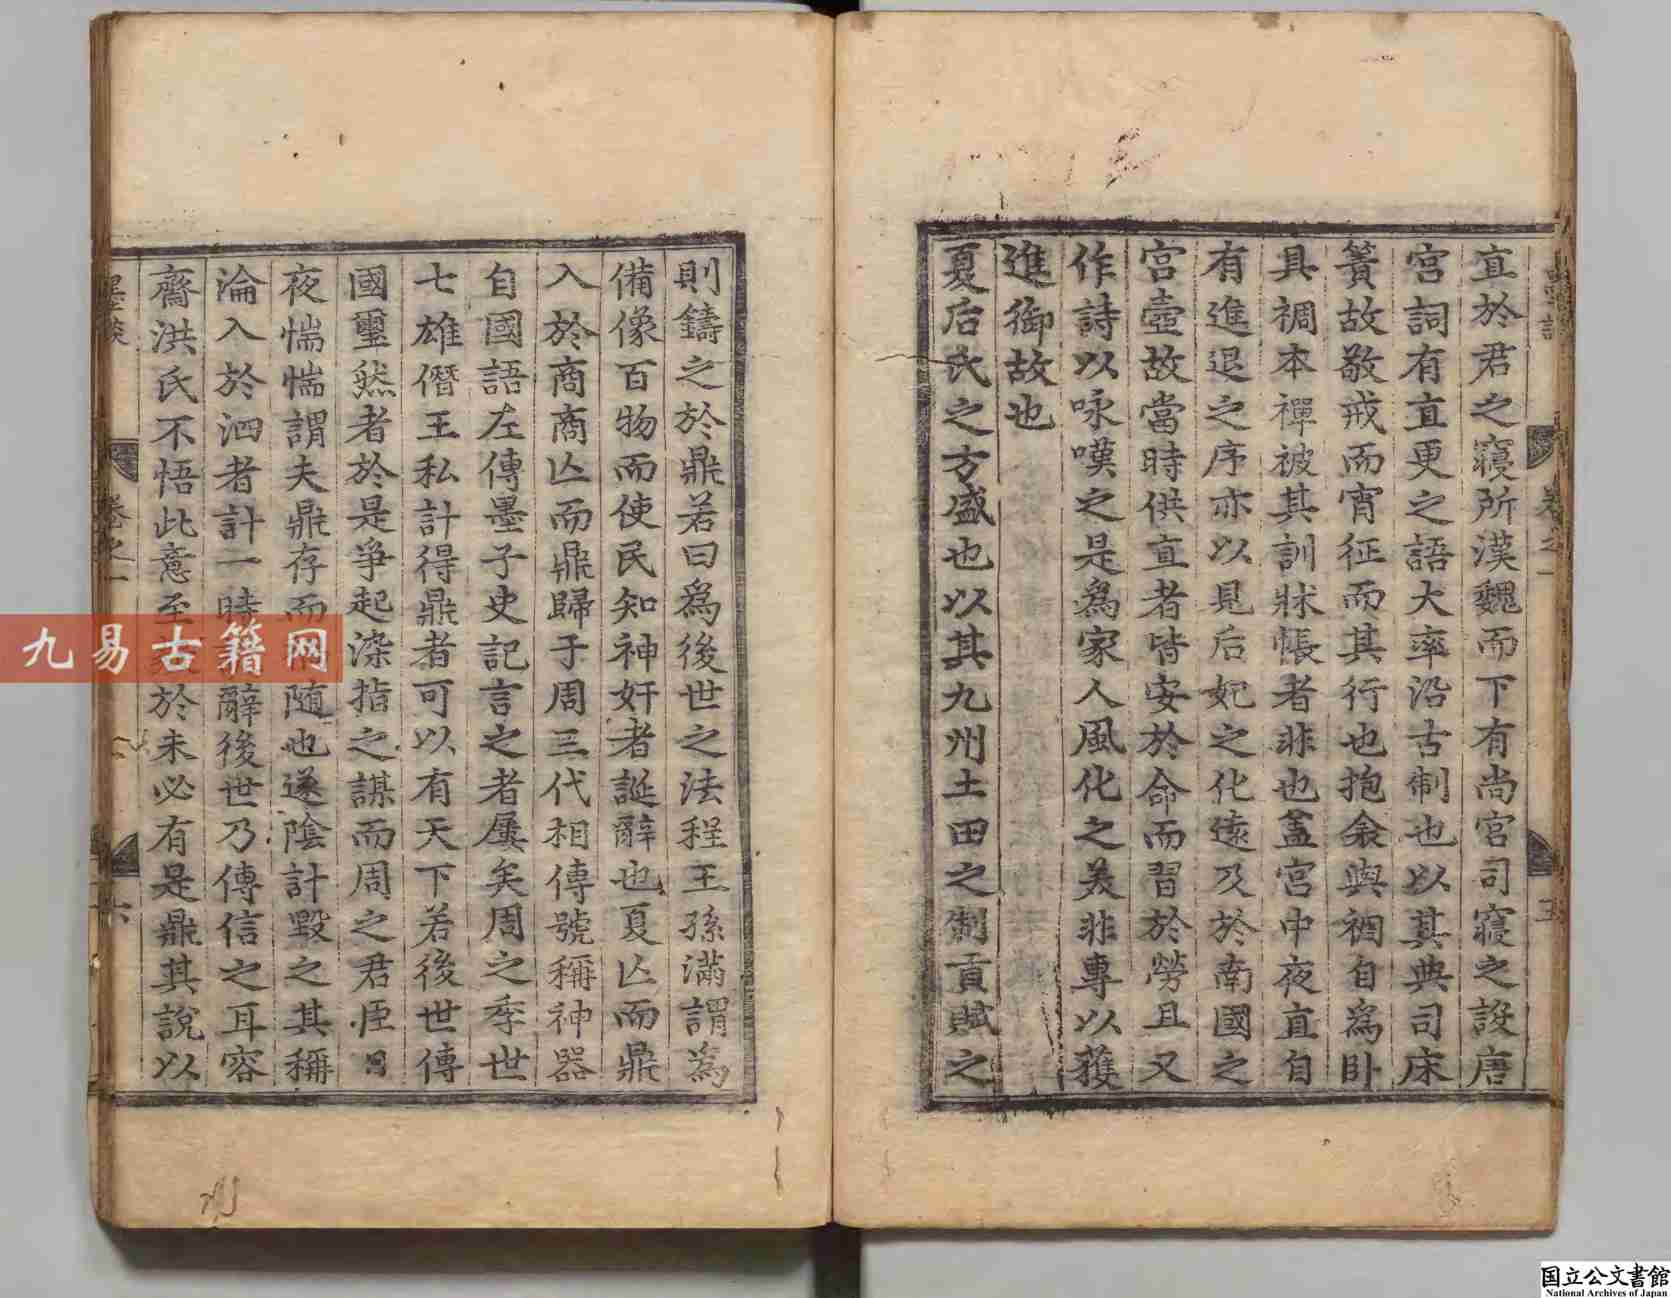 宜於君之寢所漢魏而下有尚宮司寢之設唐
宮詞有直更之語大率沿古制也以其典司床
簀故敬戒而宵征而其行也抱衾與裯自爲卧
具裯本襌被其訓牀帳者非也盖宮中夜直自
有進退之序亦以見后妃之化遠及於南國之
宮壼故當時供直者皆安於命而習於勞且又
作詩以咏嘆之是爲家人風化之美非專以蒦
進御故也
夏后氏之方盛也以其九州土田之制貢賦之
卷之一
五
則鑄之於鼎若曰爲後世之法程王孫滿謂爲
備像百物而使民知神奸者誕辭也夏亾而鼎
入於商商亾而鼎歸于周三代相傳號稱神器
自國語左傳墨子史記言之者屢矣周之季世
七雄僭王私計得鼎者可以有天下若後世傳
國璽然者於是爭起染指之謀而周之君臣日
夜惴惴謂夫鼎存而隨也遂陰計毀之其稱
淪入於泗者計一時辭後世乃傳信之耳容
齋洪氏不悟此意至於未必有是鼎其說以
墨談
卷之一
六
九易古籍网
国立公文書館
National Archives of Japan